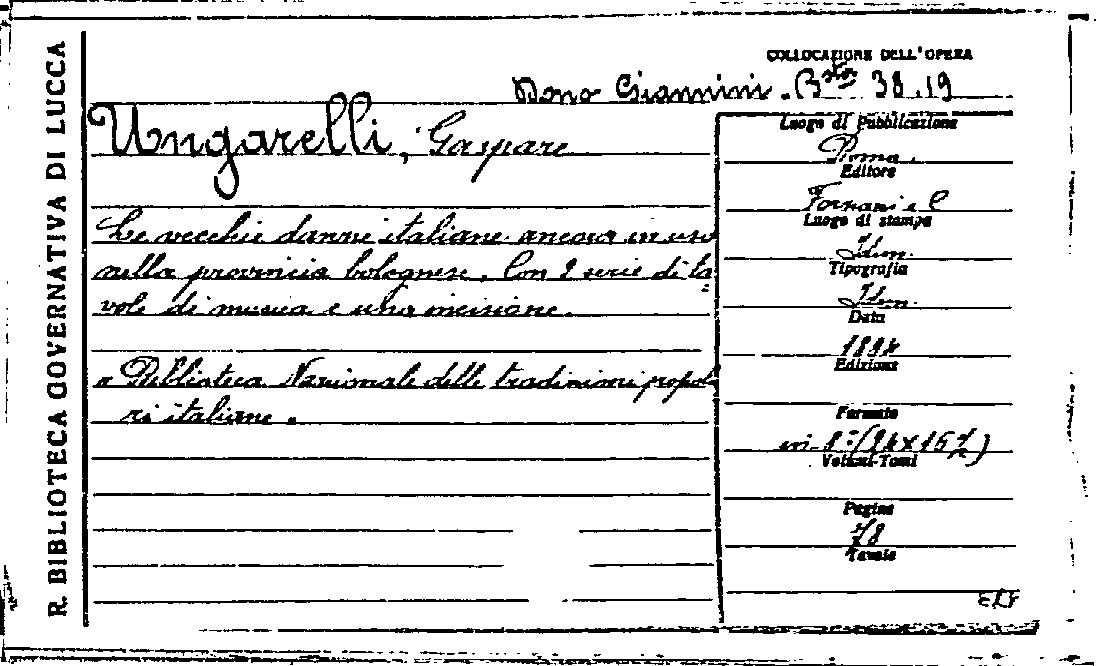 R. BIBLIOTECA GOVERNATIVA DI LUCCA
COLLOCAZIONE DELL'OPERA
Dono Giannini. Bsta 38.19
Ungarelli, Gaspare
Le vecchie danze italiane ancora in uso
nella provincia bolognese. Con 2 serie di ta
vole di musica e una incisione.
a Biblioteca Nazionale delle tradizioni popola
ri italiane.
Luogo di Pubblicazione
Roma.
Editore
Forzani e C
Luogo di stampa
Idem.
Tipografia
Idem.
Data
1894
Edizione
Formato
in 8° (24x16 ½)
Volumi-Tomi
Pagine
78
Tavole